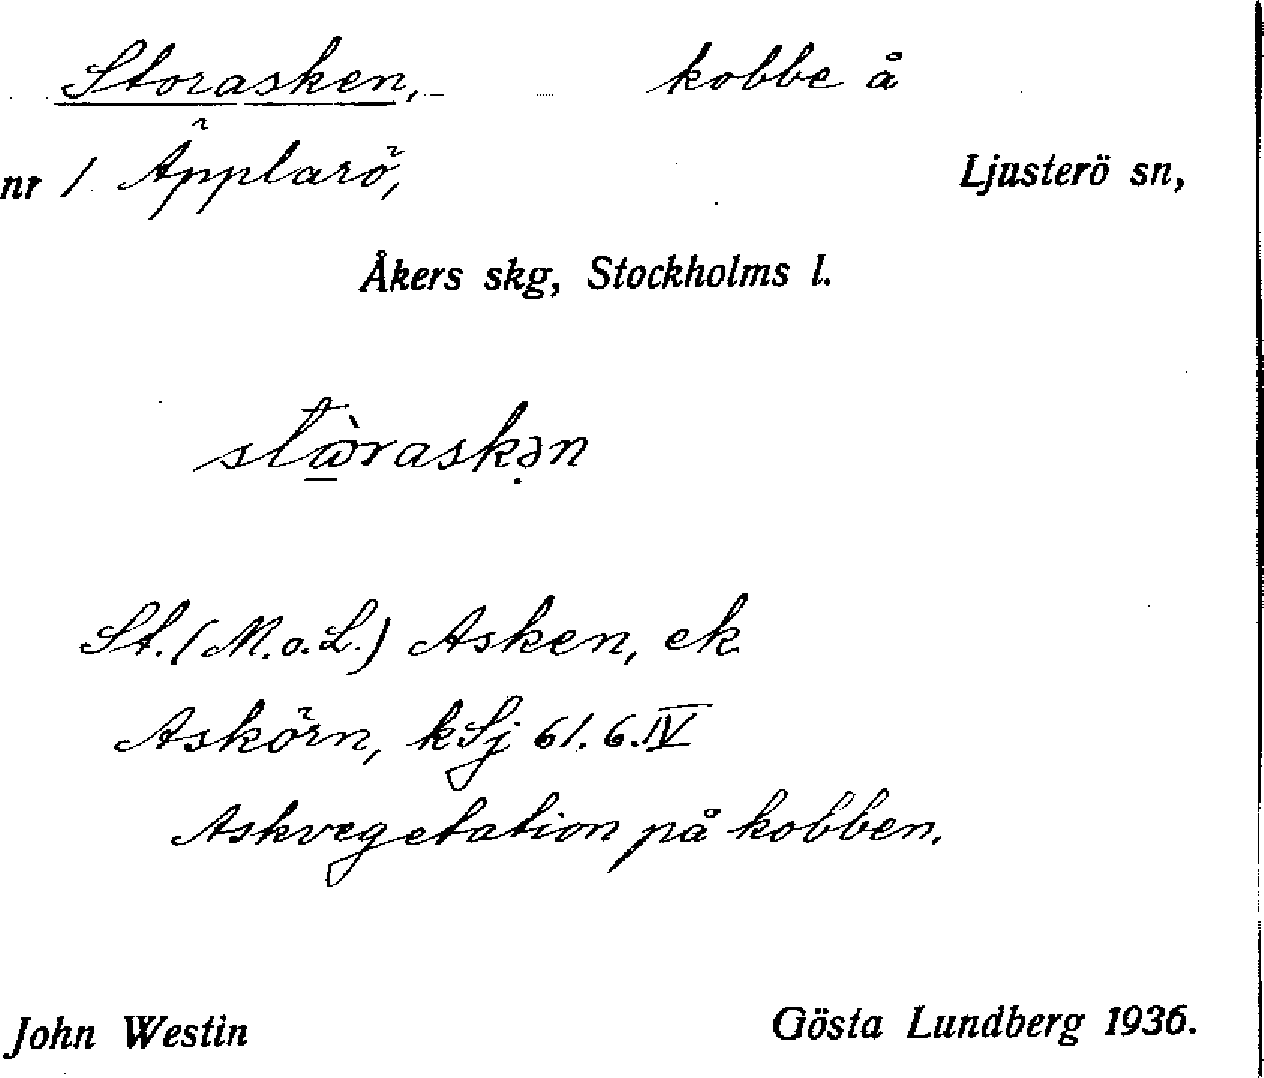 Storasken, kobbe å
nr 1 Äpplarö, Ljusterö sn,
Åkers skg, Stockholms l.
stὼ̲raskə̣n
St. (M.o.L.) Asken, ek.
Askörn, kSj 61.6.IV
Askvegetation på kobben.
John Westin Gösta Lundberg 1936.